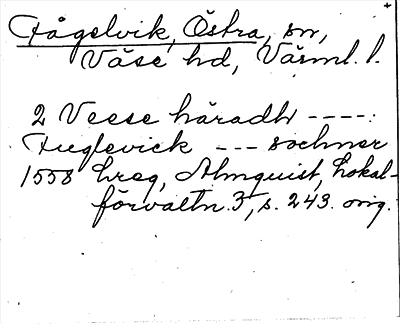 Fågelvik, Östra, sn,
Väse hd, Värml. l.
2 Veese häradh ----:
Fuglevick --- sochner
1558 hreg, Almquist, Lokal-
förvaltn. 3, s. 243. orig.